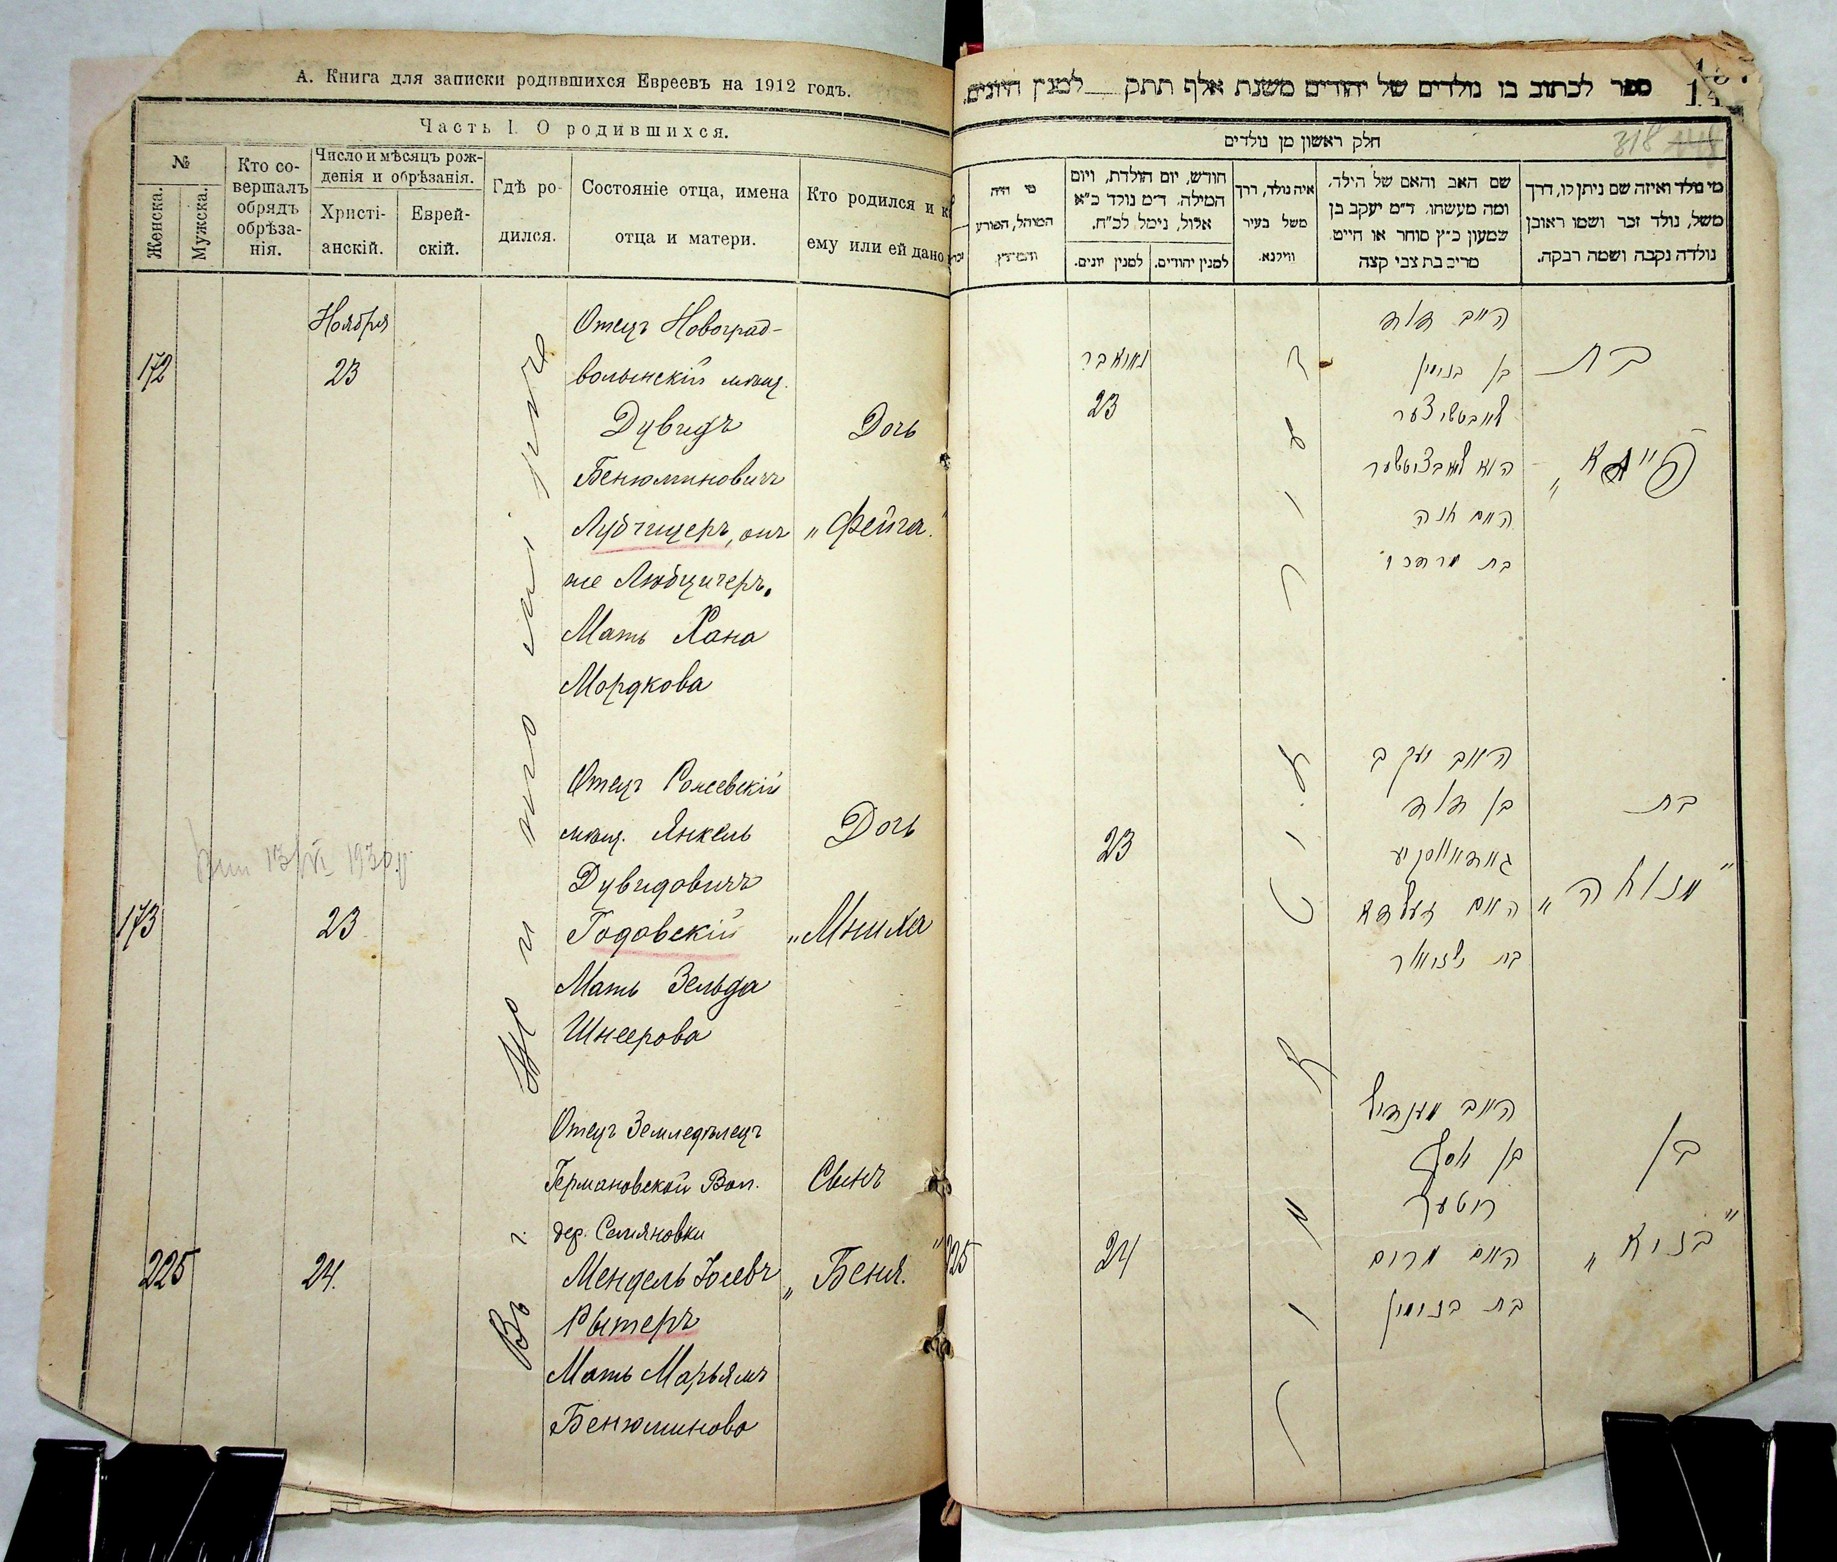 А. Книга для записки родившихся Евреевъ на 1912 годъ.
Часть I. О родившихся.
№
Женска.
Мужска.
Кто со-
вершалъ
обрядъ
обрѣза-
нія.
Число и мѣсяцъ рож-
денія и обрѣзанія.
Христі-
анскій.
Еврей-
скій.
Гдѣ ро-
дился.
Состояніе отца, имена
отца и матери.
Кто родился и к
ему или ей дано
Въ г. Житомирѣ
172
Ноября
23
Отецъ Новоград-
волынскій мѣщ.
Дувидъ
Бенюминовичъ
Лубчицеръ, онъ
же Любцичеръ.
Мать Хана
Мордкова
Дочь
„Фейга."
173
23
вып 13/VI 1930 г
Отецъ
мѣщ. Янкель
Дувидовичъ
Годовскій
Мать Зельда
Шнеерова
Дочь
„Мниха
225
24.
Отецъ Земледѣлецъ
Германовской Вол.
дер. Семяновки
Мендель
Рытеръ
Мать Марьямъ
Бенюминова
Сынъ
„Беня."
ספר לכתוב בו נולדים של יהודים משנת אלף תתק __ למנין היונים.
318
חלק ראשון מן נולדים
מי נולד ואיזה שם ניתן לו, דרך
משל, נולד זכר ושמו ראובן
נולדה נקבה ושמה רבקה.
שם האב והאם של הילד,
ומה מעשהו. ד״מ יעקב בן
שמעון כ״ץ סוחר או חייט
מרים בת צבי קצה
איה נולד, דרך
משל בעיר
ווילנא.
חודש, יום הולדת, ויום
המילה, ד״מ נולד כ״א
אלול, נימל לכ״ח.
למנין יהודים.
למנין יונים.
מי היה
המוהל, הפורע
והמוצץ
זיטאמיר
בת
„פייגא"
האב דוד
בן בנימין
ליובטשיצער
הוא ליובציטשער
האם חנה
בת מרדכי
נאיאבר
23
בת
„מניחה"
האב יעקב
בן דוד
גאדאווסקי
האם זעלדא
בת שניאור
23
בן
„בניא"
האב מענדיל
בן יוסף
ריטער
האם מרים
בת בנימין
24
225